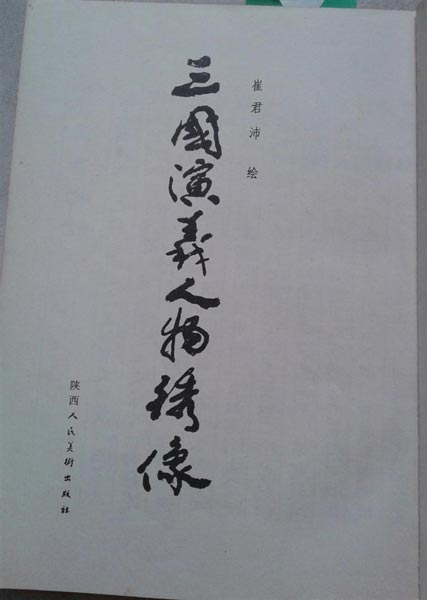 崔君沛 绘
三國演義人物綉像
陕西人民美術出版社